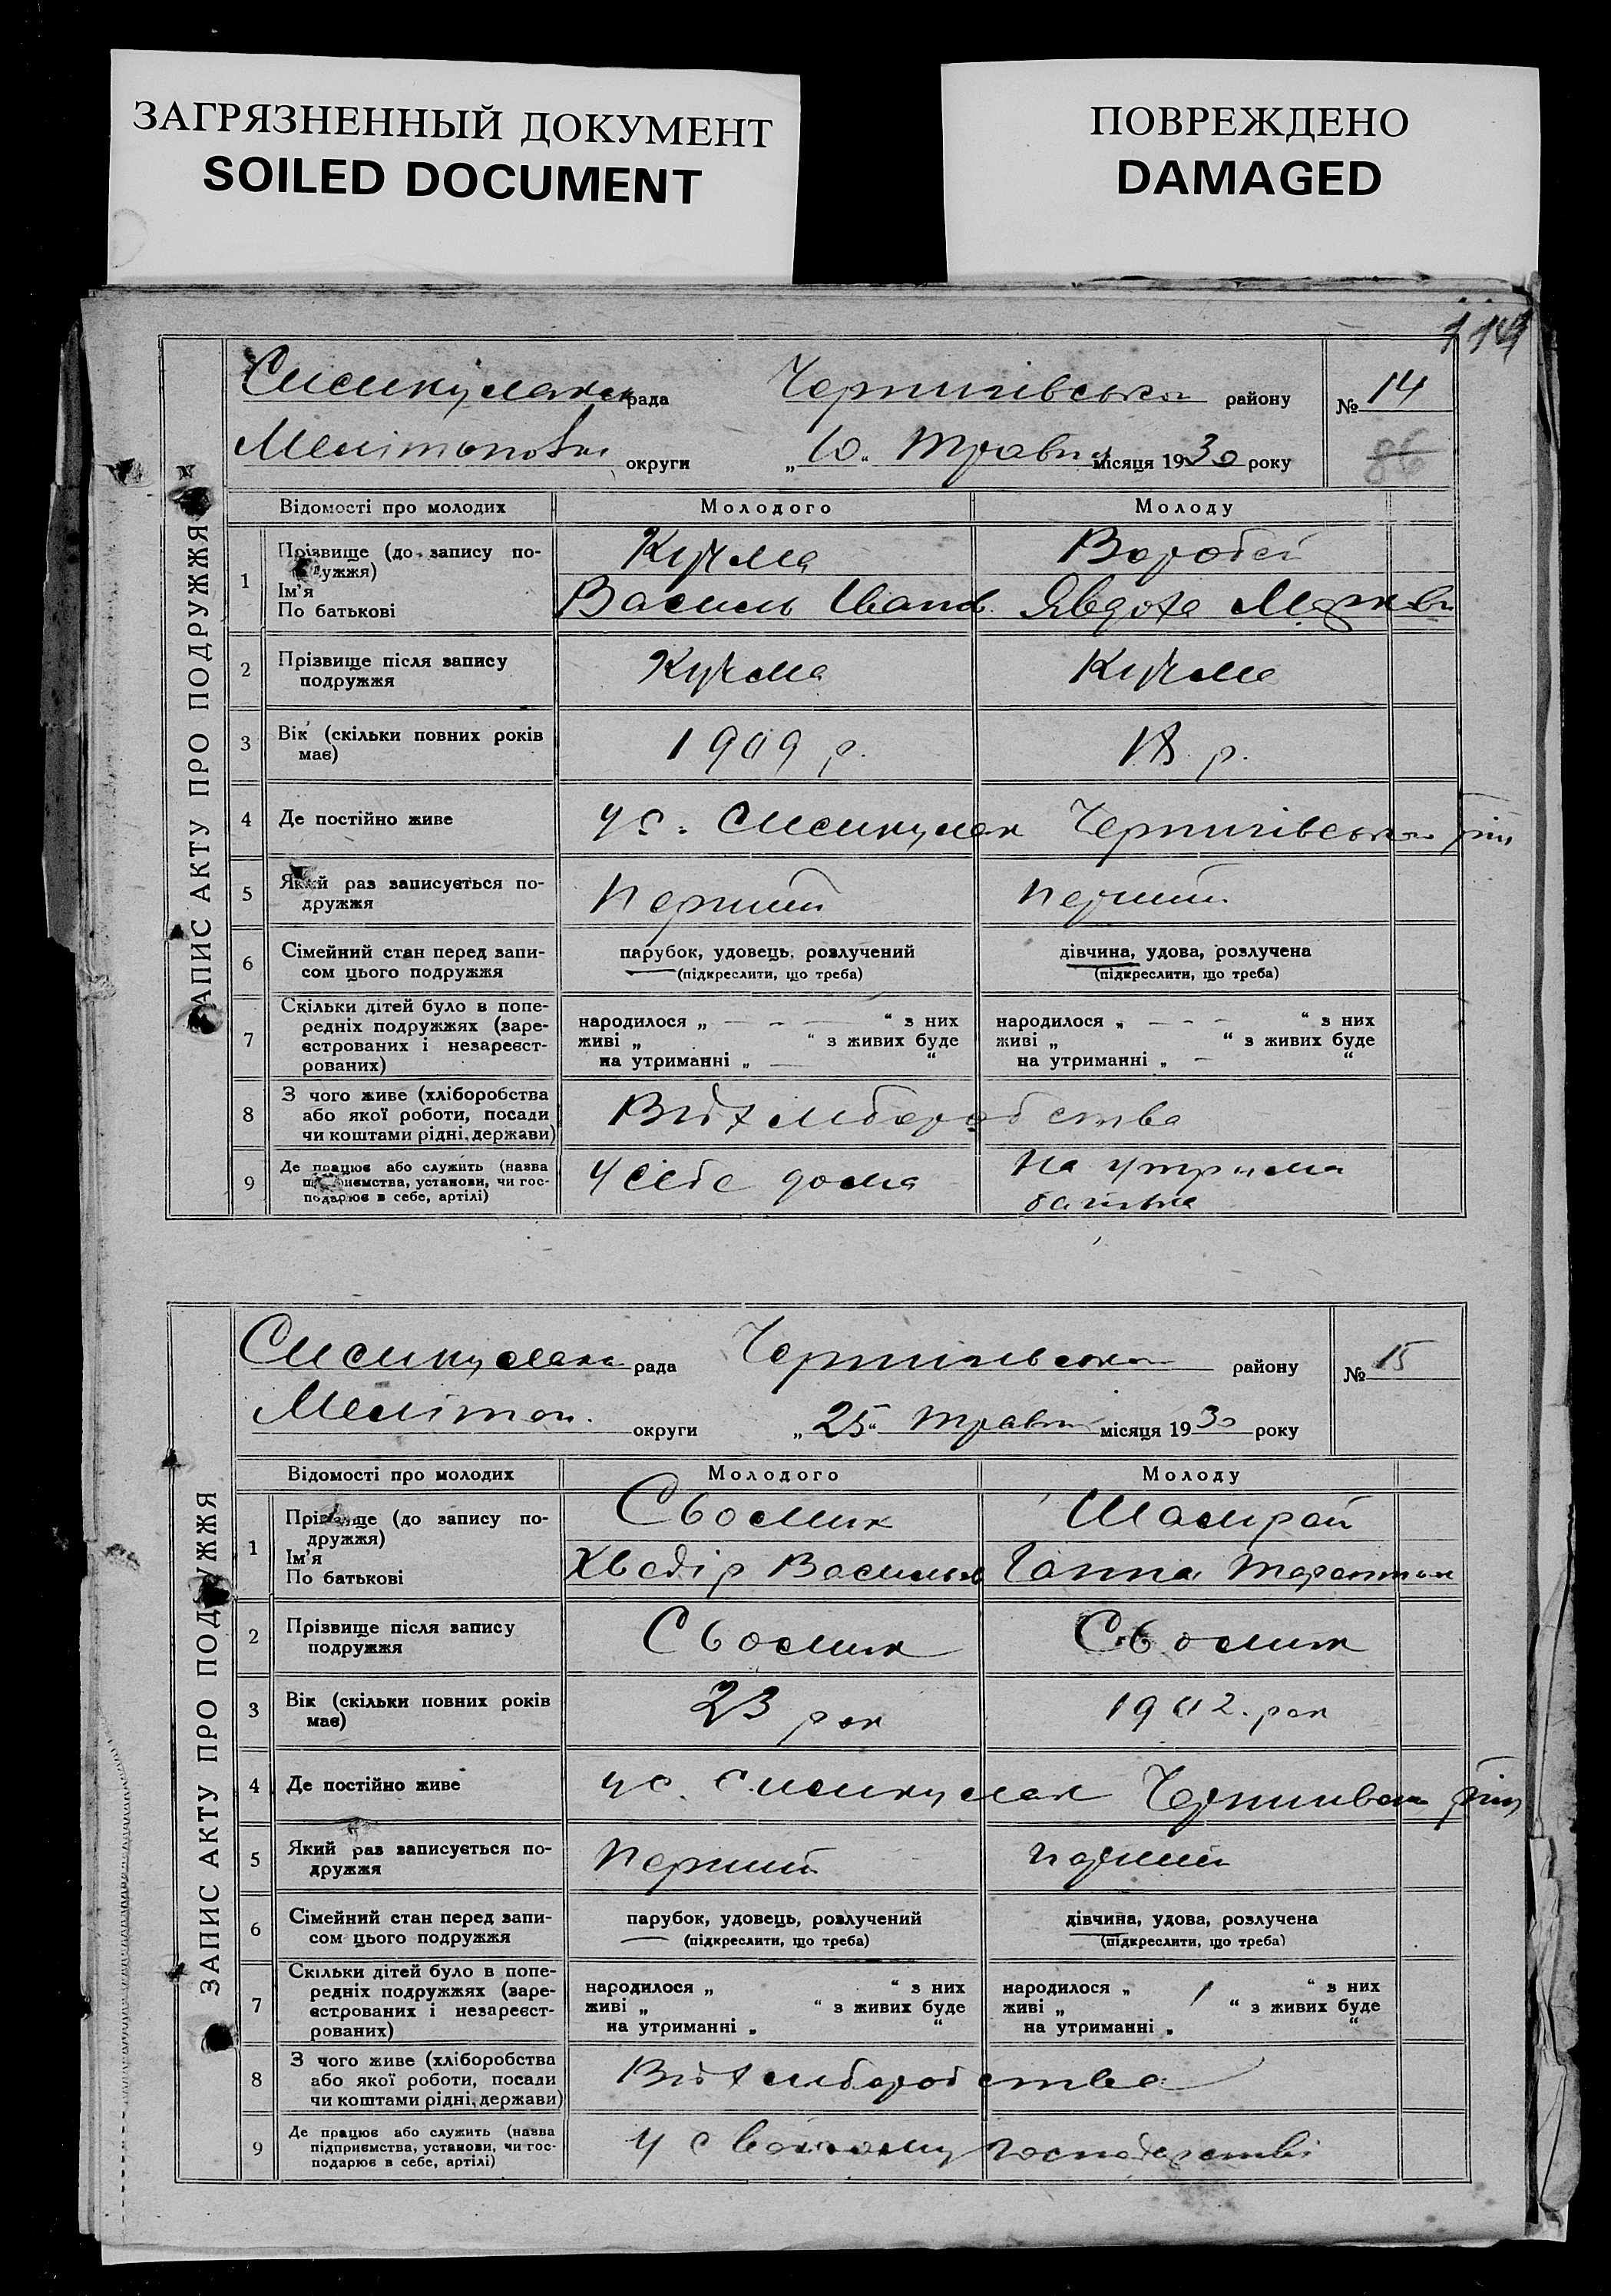 ЗАГРЯЗНЕННЫЙ ДОКУМЕНТ
SOILED DOCUMENT
ПОВРЕЖДЕНО
DAMAGED
114
рада Чернигівська району № 14
округи „10“ Травня місяця 1930 року 86
ЗАПИС АКТУ ПРО ПОДРУЖЖЯ
Відомості про молодих Молодого Молоду
1 Прізвище (до запису подружжя) Кучма Воробей
Ім'я
По батькові Василь Іванов. Явдоха
2 Прізвище після запису Кучма Кучма
подружжя
3 Вік (скільки повних років 1909 р. 18 р.
має)
4 Де постійно живе у с. Чернигівського
5 Який раз записується по- перший перший
дружжя
6 Сімейний стан перед запи- парубок, удовець, розлучений дівчина, удова, розлучена
сом цього подружжя (підкреслити, що треба) (підкреслити, що треба)
7 Скільки дітей було в попе-
редніх подружжях (заре- народилося „ — - — “ з них народилося „ — - - “ з них
єстрованих і незареєст- живі „ “ з живих буде живі „ “ з живих буде
рованих) на утриманні „ — “ на утриманні „ — “
8 З чого живе (хліборобства
або якої роботи, посади Від хліборобства
чи коштами рідні, держави)
9 Де працює або служить (назва На утрима
підприємства, установи, чи гос- У себе дома
подарює в себе, артілі) батька
рада району № 15
Мелітоп. округи „25“ Травня місяця 1930 року
ЗАПИС АКТУ ПРО ПОДРУЖЖЯ
Відомості про молодих Молодого Молоду
1 Прізвище (до запису по- Сьомик Шамрай
дружжя)
Ім'я
По батькові Хведір Васильов Ганна
2 Прізвище після запису Сьомик Сьомик
подружжя
3 Вік (скільки повних років 23 рок 1902. рок
має)
4 Де постійно живе у с.
5 Який раз записується по- перший перший
дружжя
6 Сімейний стан перед запи- парубок, удовець, розлучений дівчина, удова, розлучена
сом цього подружжя (підкреслити, що треба) (підкреслити, що треба)
7 Скільки дітей було в попе-
редніх подружжях (заре- народилося „ “ з них народилося „ “ з них
єстрованих і незареєст- живі „ “ з живих буде живі „ “ з живих буде
рованих) на утриманні „ “ на утриманні „ “
8 З чого живе (хліборобства
або якої роботи, посади Від хліборобства
чи коштами рідні, держави)
9 Де працює або служить (назва
підприємства, установи, чи гос- У своїому господарстві
подарює в себе, артілі)